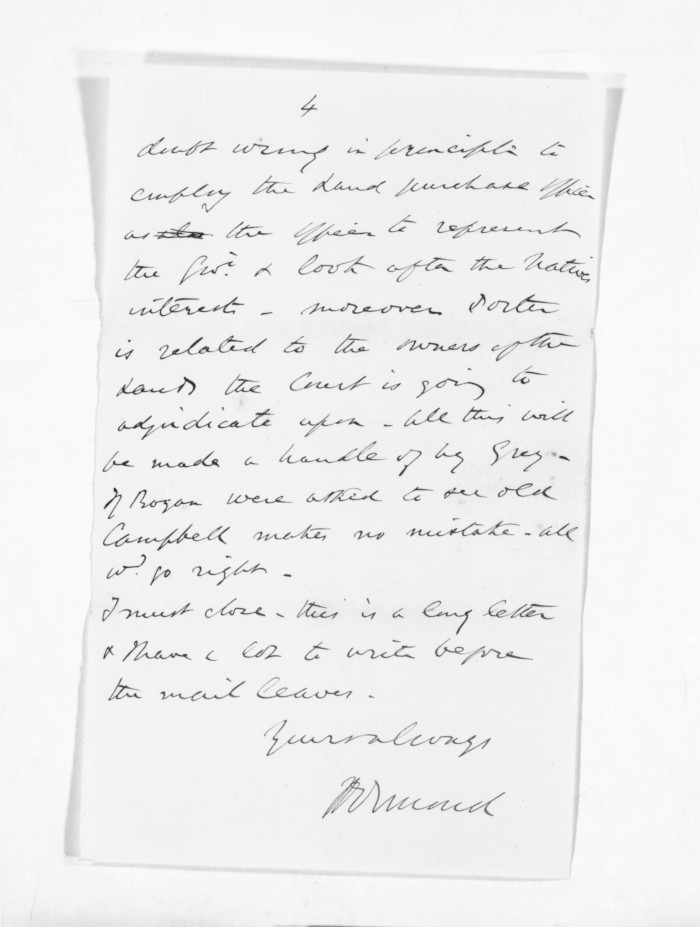 4
doubt wrong in principle to
employ the Land purchase Officer
as the Officer to represent
the Govt. & look after the Natives
interests - moreover Porter
is related to the owners of the
Lands the Court is going to
adjudicate upon - all this will
be made a handle of by Grey -
If Rogan were asked to see old
Campbell makes no mistake - all
wd. go right -
I must close - this is a long letter
& I have a lot to write before
the mail leaves -
Yours always
JD Ormond